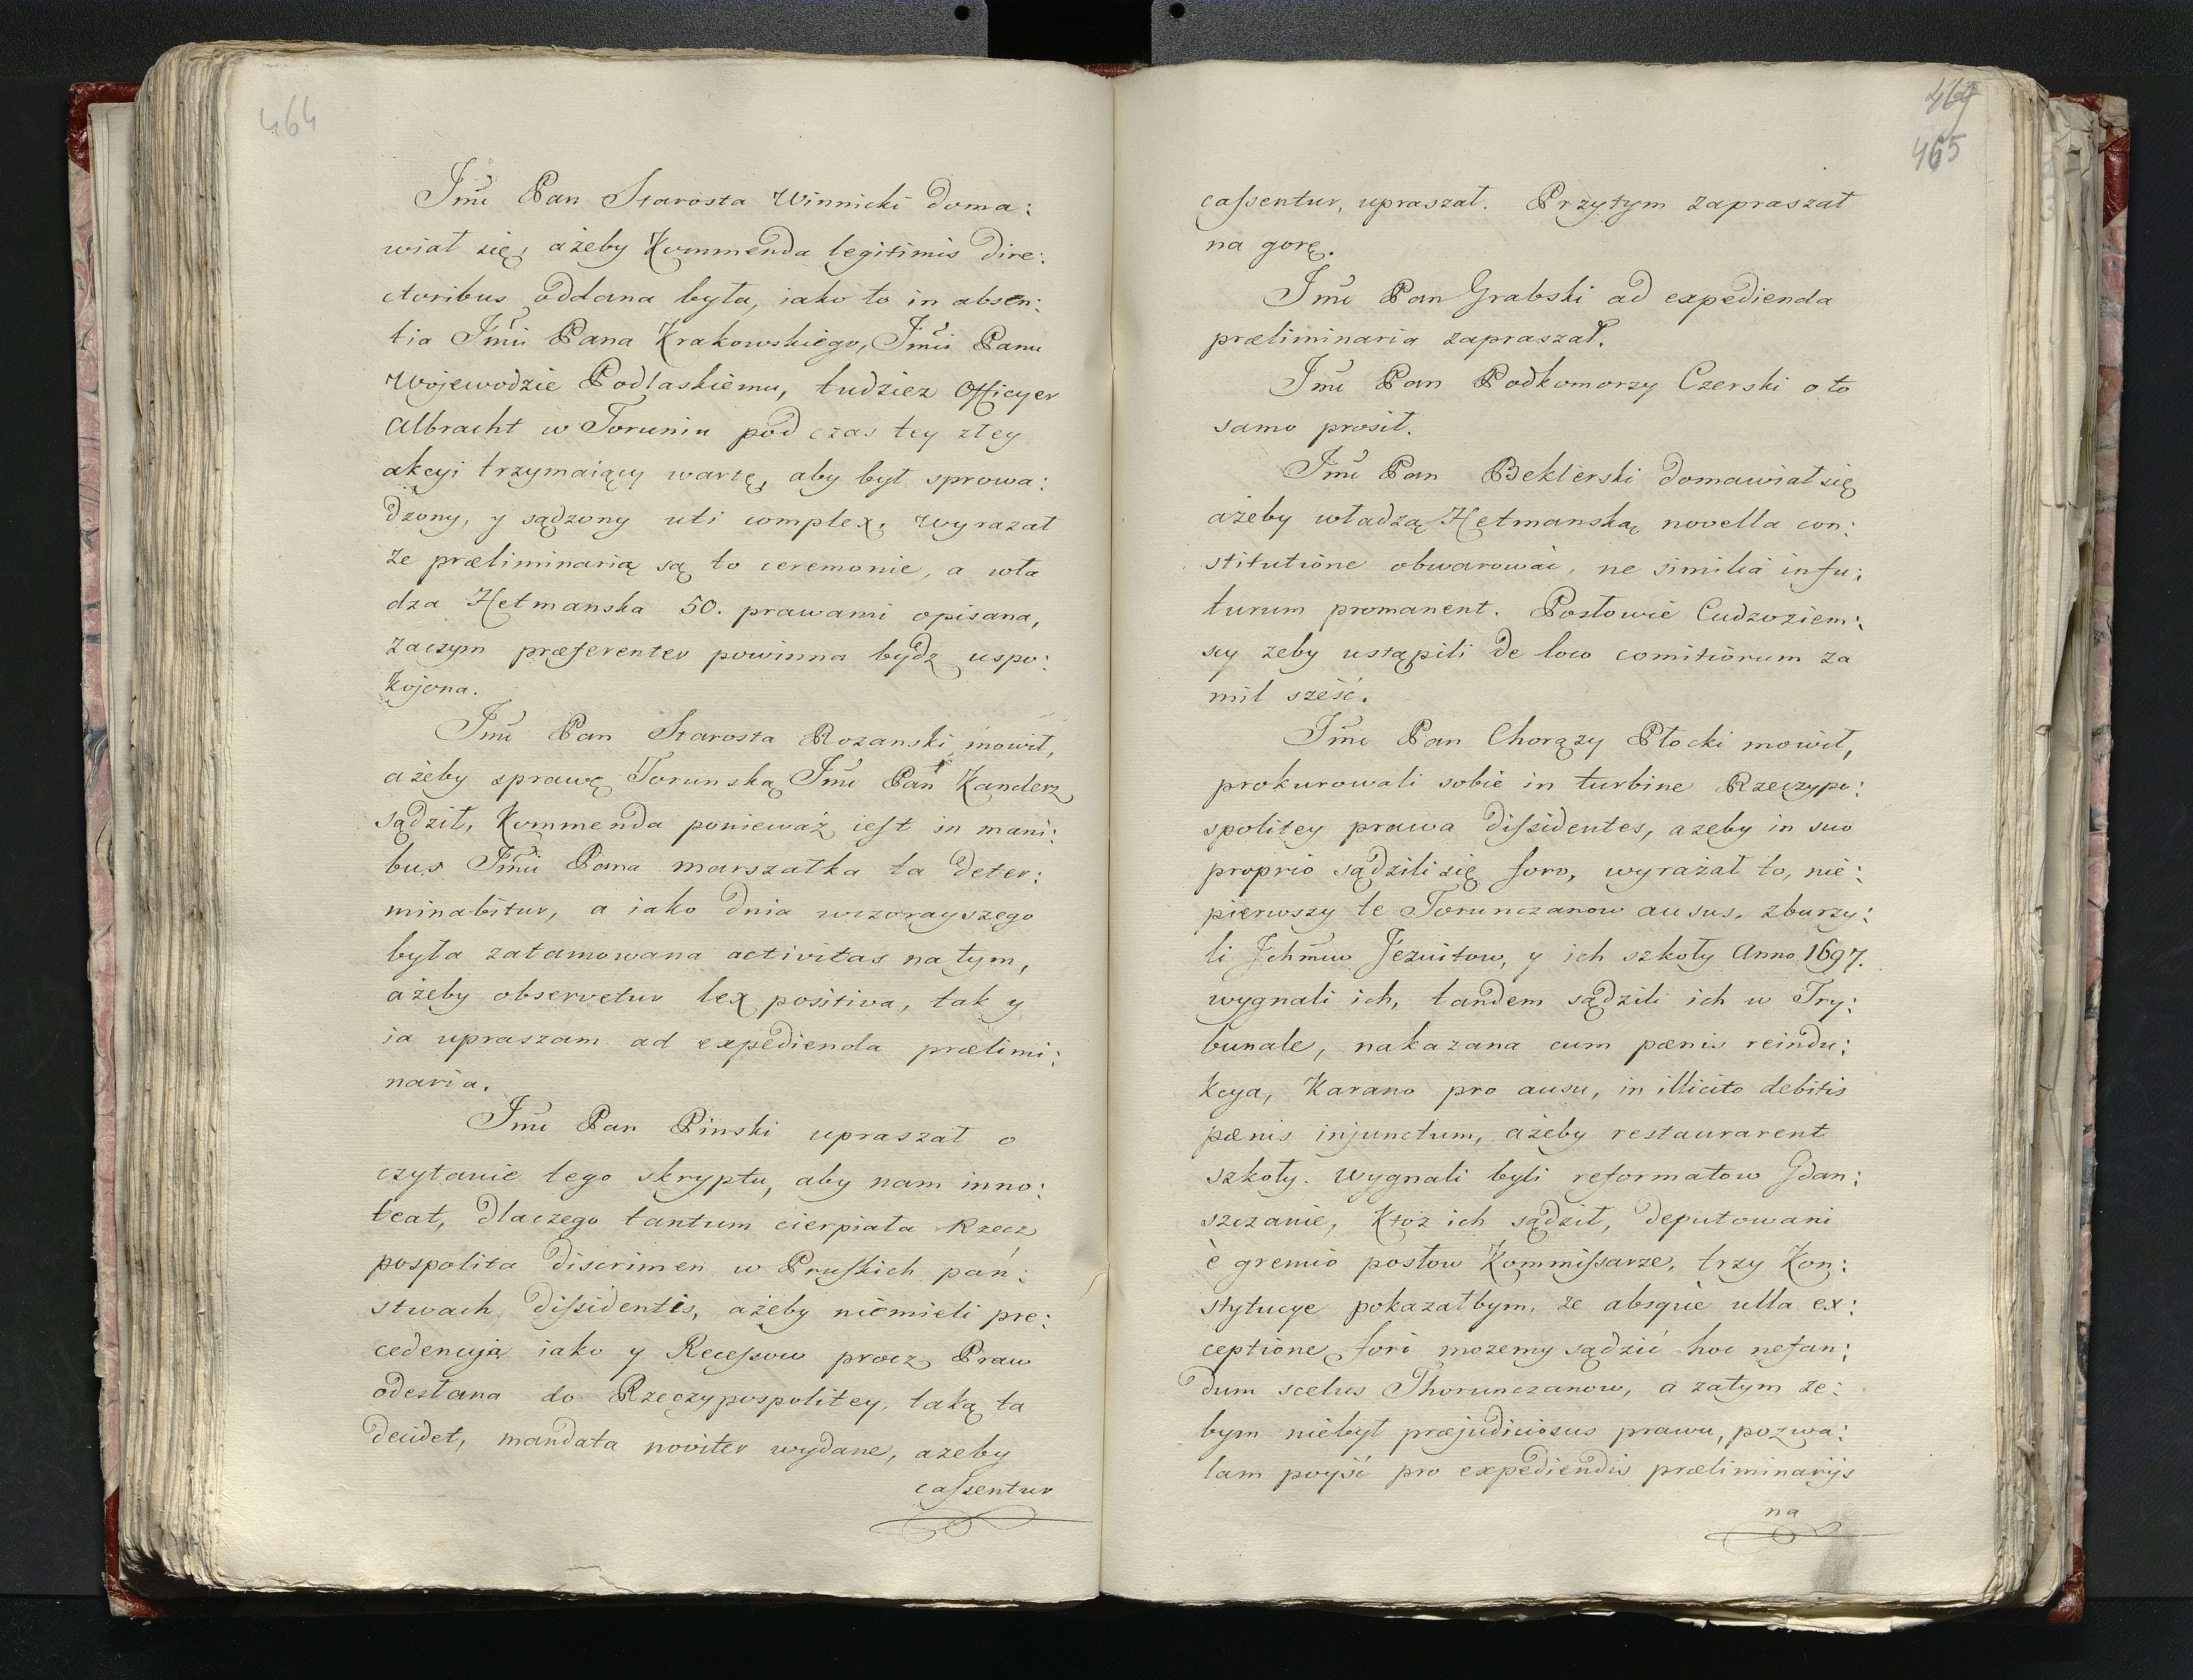 464
Jmć Pan Starosta Winnicki doma:
wiał się, ażeby Kommenda legitimis dire:
ctoribus oddana była, iako to in absen:
tia Jmći Pana Krakowskiego, Jmći Panu
Wojewodzie Podlaskiemu, tudziez Officyer
Albracht w Toruniu pod czas tey złey
akcyi trzymaiący wartę, aby był sprowa:
dzony, y sądzony uti complex. Wyrazał
że præliminarią są to ceremonie, a wła
dza Hetmanska 50. prawami opisana,
zaczym præferenter powinna bydz uspo:
kojona.
Jmć Pan Starosta Rozanski mowił,
ażeby sprawę Torunską Jmć Pan Kanclerz
sądził, Kommenda ponieważ iest in mani:
bus Jmći Pana marszałka ta deter:
minabitur, a iako dnia wczorayszego
była zatamowana activitas na tym,
ażeby observetur lex positiva, tak y
ia upraszam ad expedienda prælimi:
naria.
Jmć Pan Pinski upraszał o
czytanie tego skryptu, aby nam inno:
teat, dlaczego tantum cierpiała Rzecz
pospolita discrimen w Pruskich pań:
stwach dissidentis, ażeby niemieli pre:
cedencyją iako y Recessow procz Praw
odesłana do Rzeczypospolitey, taką ta
decidet, mandata noviter wydane, ażeby
cassentur
465
cassentur, upraszał. Przytym zapraszał
na gorę.
Jmć Pan Grabski ad expedienda
præliminaria zapraszał.
Jmć Pan Podkomorzy Czerski o to
samo prosił.
Jmć Pan Beklerski domawiał się
ażeby władzą Hetmanską novella con:
stitutione obwarować, ne similia in fu:
turum promanent. Posłowie Cudzoziem:
scy zeby ustąpili de loco comitiorum za
mil sześć.
Jmć Pan Chorązy Płocki mowił,
prokurowali sobie in turbine Rzeczypo:
spolitey prawa dissidentes, azeby in suo
proprio sądzili się foro, wyrażał to, nie:
pierwszy te Torunczanow ausus, zburzy:
li Jchmćw Jezuitow, y ich szkoły Anno 1697.
wygnali ich, tandem sądzili ich w Try:
bunale, nakazana cum pœnis reindu:
kcya, Karano pro ausu, in illicito debitis
pœnis injunctum, ażeby restaurarent
szkoły. Wygnali byli reformatow Gdan:
szczanie, Ktoz ich sądził, deputowani
è gremio posłow Kommissarze, trzy Kon:
stytucye pokazałbym, ze absque ulla ex:
ceptione fori mozemy sądzić hoc nefan:
dum scelus Thorunczanow, a zatym ze:
bym niebył præjudiciosus prawu, pozwa:
lam poyść pro expediendis præliminarijs
na